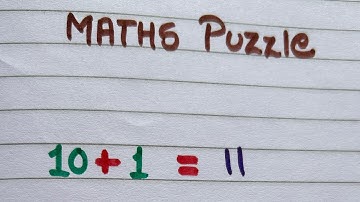 MATHS Puzzle
10 + 1 = 11